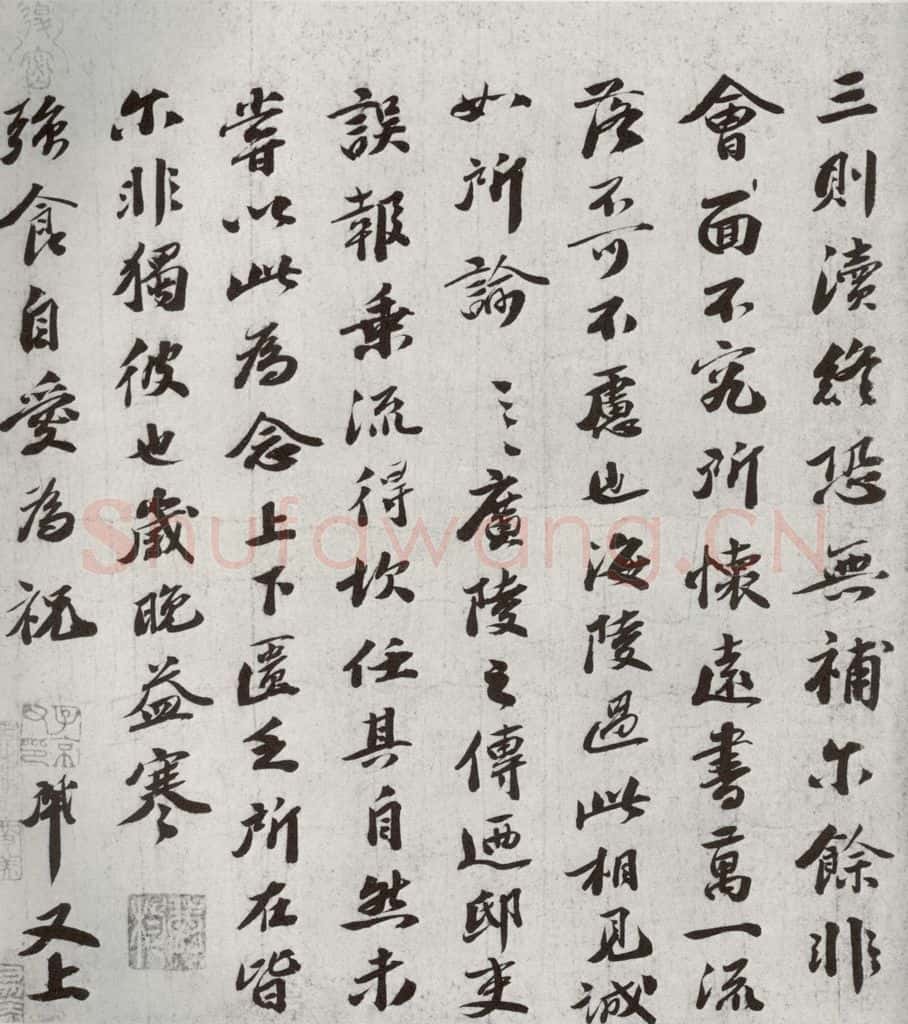 三則瀆終恐無補尒餘非
會面不究所懷遠書萬一流
落不可不慮也海陵過此相見誠
如所論三、廣陵之傳迺邸吏
誤報乗流得坎任其自然未
嘗以此為念上下匱乏所在皆
尒非獨彼也歲晚益寒
強食自愛為祝 又上
Shufawang.CN